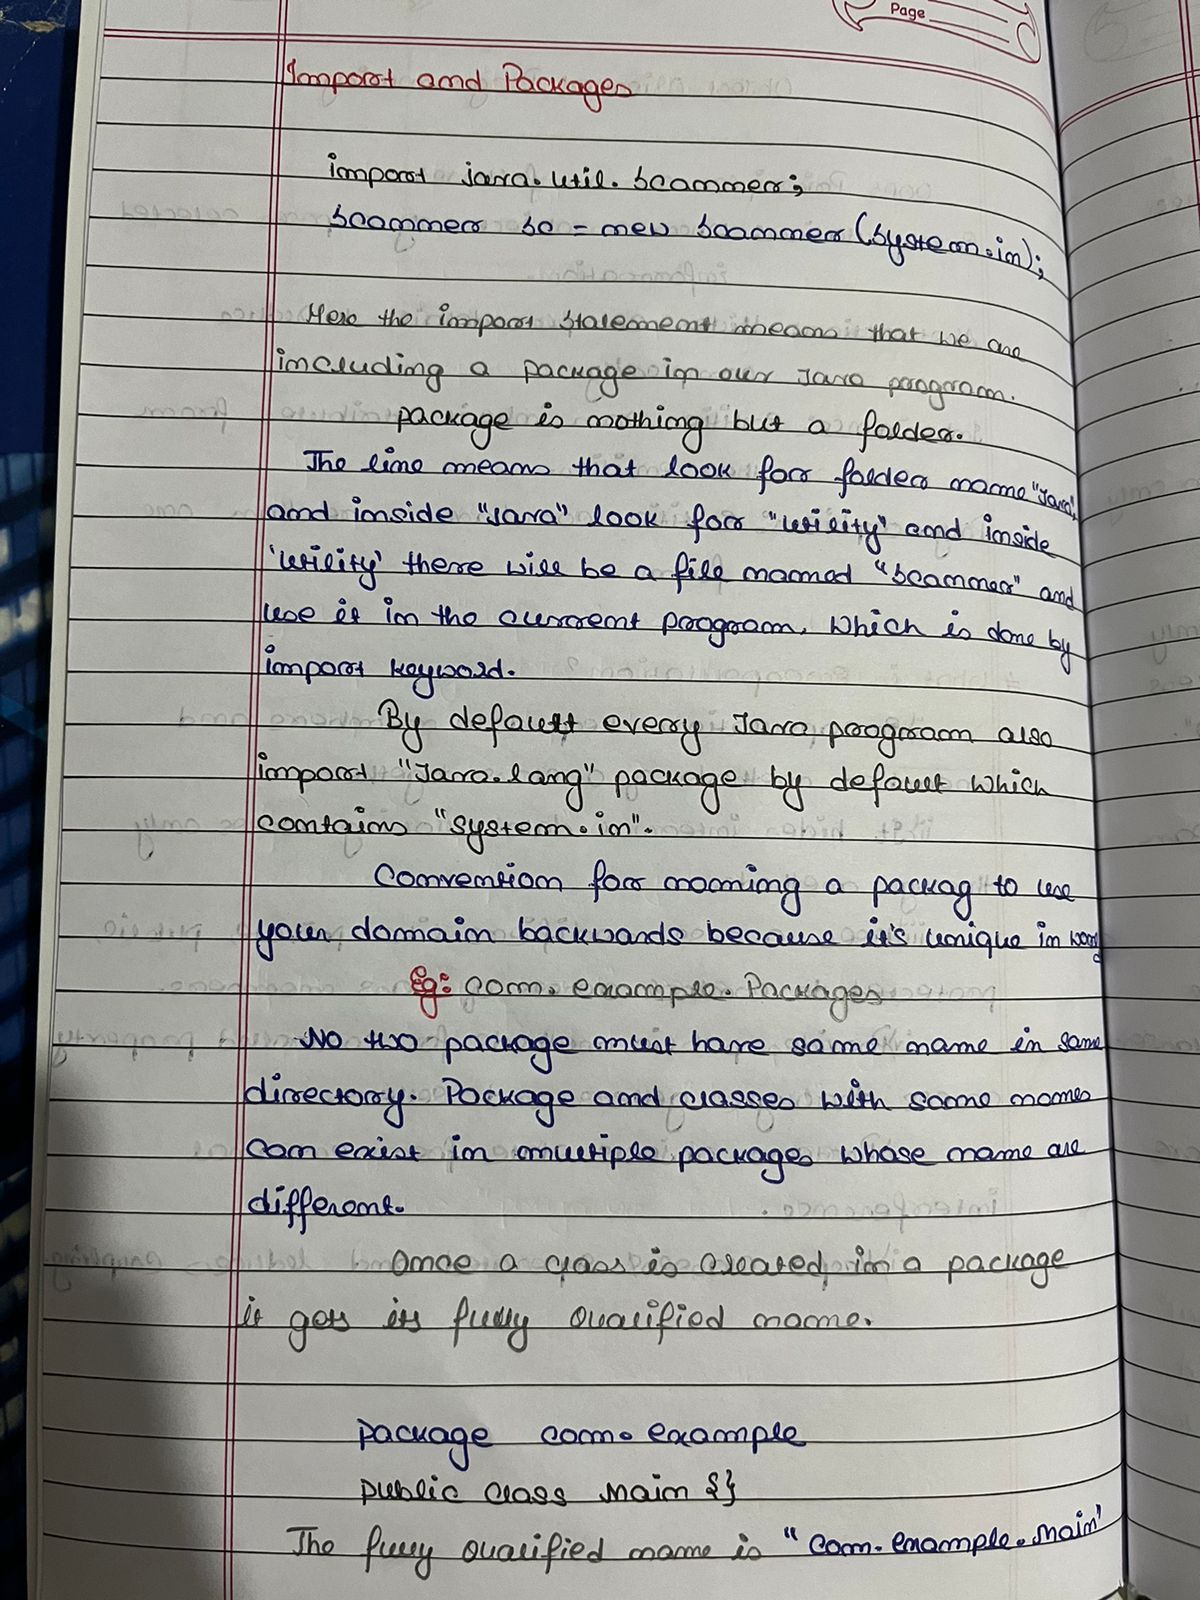 Page
Import and Packages
import java.util.Scanner;
Scanner sc = new Scanner(System.in);
Here the import statement means that we are
including a package in our Java program.
package is nothing but a folder.
The line means that look for folder name "Java"
and inside "Java" look for "utility" and inside
'utility' there will be a file named "Scanner" and
use it in the current program, which is done by
import keyword.
By default every Java program also
import "Java.lang" package by default which
contains "System.in".
Convention for naming a packag to use
your domain backwards because it's unique in
Eg: com.example.Packages
No two package must have same name in same
directory. Package and classes with same names
can exist in multiple packages whose name are
different.
Once a class is created in a package
it gets its fully qualified name.
package com.example
public class Main {}
The fully qualified name is "com.example.Main"